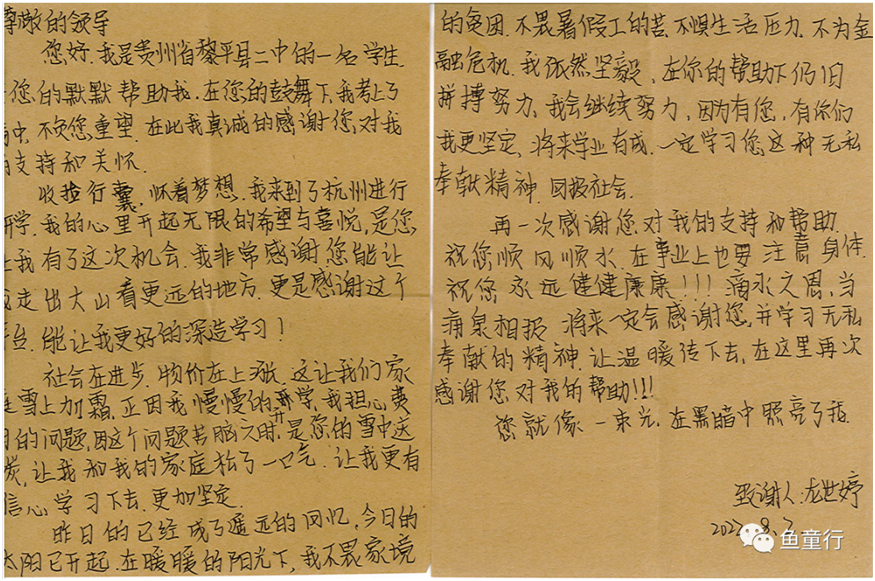 尊敬的领导
您好.我是贵州省黎平县二中的一名学生.
您的默默帮助我.在您的鼓舞下,我考上了
不负您重望.在此我真诚的感谢您,对我
支持和关怀.
收捡行囊,怀着梦想.我来到了杭州进行
研学.我的心里开起无限的希望与喜悦,是您
让我有了这次机会.我非常感谢您能让
我走出大山看更远的地方.更是感谢这个
平台.能让我更好的深造学习!
社会在进步.物价在上涨.这让我们家
庭雪上加霜.正因我慢慢的升学.我担心费
用的问题,因这个问题苦脑之时,是您的雪中送
炭,让我和我的家庭松了一口气.让我更有
信心学习下去.更加坚定.
昨日的已经成了遥远的回忆,今日的
太阳已开起.在暖暖的阳光下,我不畏家境
的贫困.不畏暑假工的苦.不惧生活压力.不为金
融危机.我依然坚毅.在你的帮助下仍旧
拼搏努力,我会继续努力,因为有您,有你们
我更坚定,将来学业有成.一定学习您这种无私
奉献精神.回报社会.
再一次感谢您对我的支持和帮助.
祝您顺风顺水.在事业上也要注意身体.
祝您永远健健康康!!!滴水之恩,当
涌泉相报 将来一定会感谢您,并学习无私
奉献的精神.让温暖传下去,在这里再次
感谢您对我的帮助!!!
您就像一束光.在黑暗中照亮了我.
致谢人:龙世婷
8.2
鱼童行